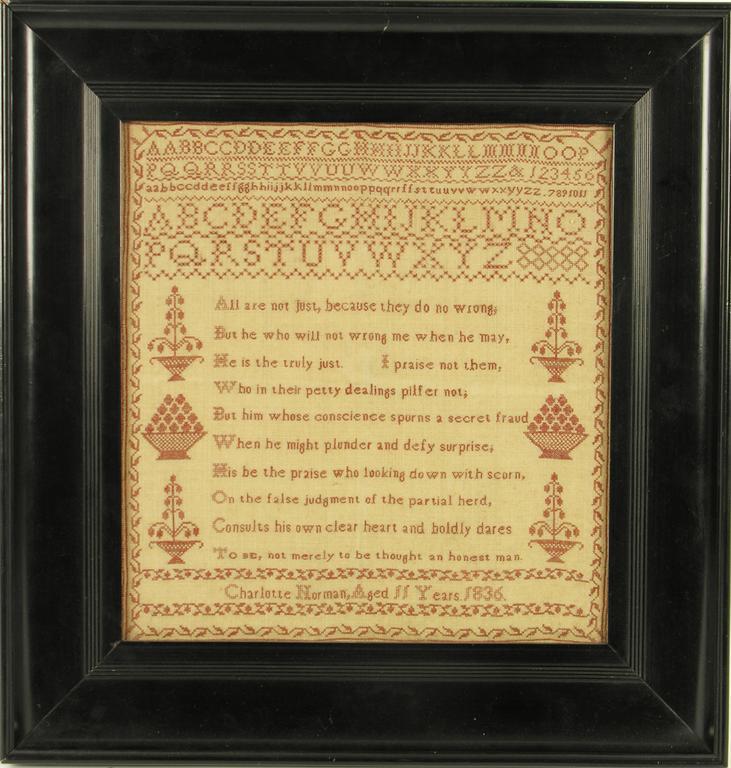 AABBCCDDEEFFGGHHIIJJKKLLMMNNOOP
PQQRRSSTTVVUUWWXXYYZZ& 123456
aabbccddeeffgghhiijjkkllmmnnooppqqrrſſsttuuvvwwxxyyzz. 7891011
ABCDEFGHIJKLMNO
PQRSTUVWXYZ
All are not just, because they do no wrong;
But he who will not wrong me when he may,
He is the truly just. I praise not them,
Who in their petty dealings pilfer not;
But him whose conscience spurns a secret fraud
When he might plunder and defy surprise;
His be the praise who looking down with scorn,
On the false judgment of the partial herd,
Consults his own clear heart and boldly dares
To BE, not merely to be thought an honest man.
Charlotte Norman, Aged 11 Years. 1836.